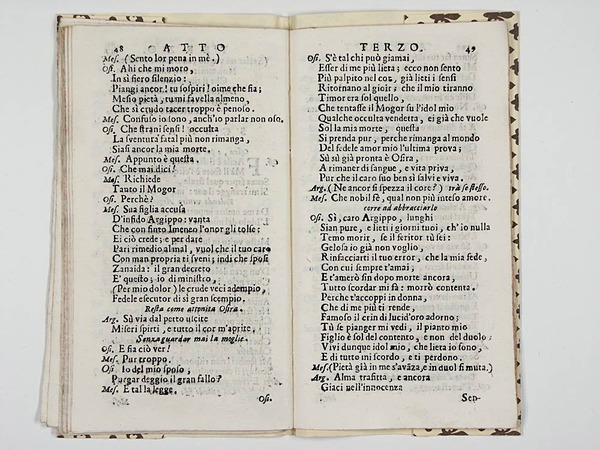 48 ATTO
Mes. (Sento lor pena in mè.)
Osi. Ahi che mi moro,
In sì fiero silenzio:
Piangi ancor! tu sospiri! oime che sia;
Messo pietà, tu mi favella almeno,
Che sì crudo tacer troppo è penoso.
Mes. Confuso io sono, anch'io parlar non oso.
Osi. Che strani sensi! occulta
La sventura fatal più non rimanga,
Siasi ancor la mia morte.
Mes. Appunto è questa.
Osi. Che mai dici?
Mes. Richiede
Tanto il Mogor
Osi. Perchè?
Mes. Sua figlia accusa
D'infido Argippo: vanta
Che con finto Imeneo l'onor gli tolse:
Ei ciò crede; e per dare
Pari rimedio al mal, vuol che il tuo caro
Con man propria ti sveni; indi che sposi
Zanaida: il gran decreto
E' questo; io di ministro,
(Per mio dolor) le crude veci adempio,
Fedele esecutor di sì gran scempio.
Resta come attonita Osira.
Arg. Sù via dal petto uscite
Miseri spirti, e tutto il cor m'aprite.
Senza guardar mai la moglie.
Osi. E sia ciò ver!
Mes. Pur troppo.
Osi. Io del mio sposo;
Purgar deggio il gran fallo?
Mes. E tal la legge.
Osi.
TERZO. 49
Osi. S'è tal chi può giamai,
Esser di me più lieta; ecco non sento
Più palpito nel cor, già lieti i sensi
Ritornano al gioir; che il mio tiranno
Timor era sol quello,
Che tentasse il Mogor su l'idol mio
Qualche occulta vendetta, ei già che vuole
Sol la mia morte, questa
Si prenda pur, perche rimanga al mondo
Del fedele amor mio l'ultima prova;
Sù sù già pronta è Osira,
A rimaner di sangue, e vita priva,
Pur che il caro suo ben si salvi e viva.
Arg. (Ne ancor si spezza il core?) trà se stesso.
Mes. Che nobil fè, qual non più inteso amore.
corre ad abbracciarlo
Osi. Sì, caro Argippo, lunghi
Sian pure, e lieti i giorni tuoi, ch'io nulla
Temo morir, se il feritor tù sei:
Gelosa io già non voglio,
Rinfacciarti il tuo error, che la mia sede,
Con cui sempre t'amai;
E t'amerò sin dopo morte ancora,
Tutto scordar mi fà: morrò contenta.
Perche t'accoppi in donna,
Che di me più ti rende,
Famoso il crin di lucid'oro adorno;
Tù se pianger mi vedi, il pianto mio
Figlio è sol del contento, e non del duolo:
Vivi dunque idol mio, che lieta io sono,
E di tutto mi scordo, e ti perdono.
Mes. (Pietà già in me s'avāza, e in duol si muta.)
Arg. Alma trafitta, e ancora
Giaci nell'innocenza
Sep-